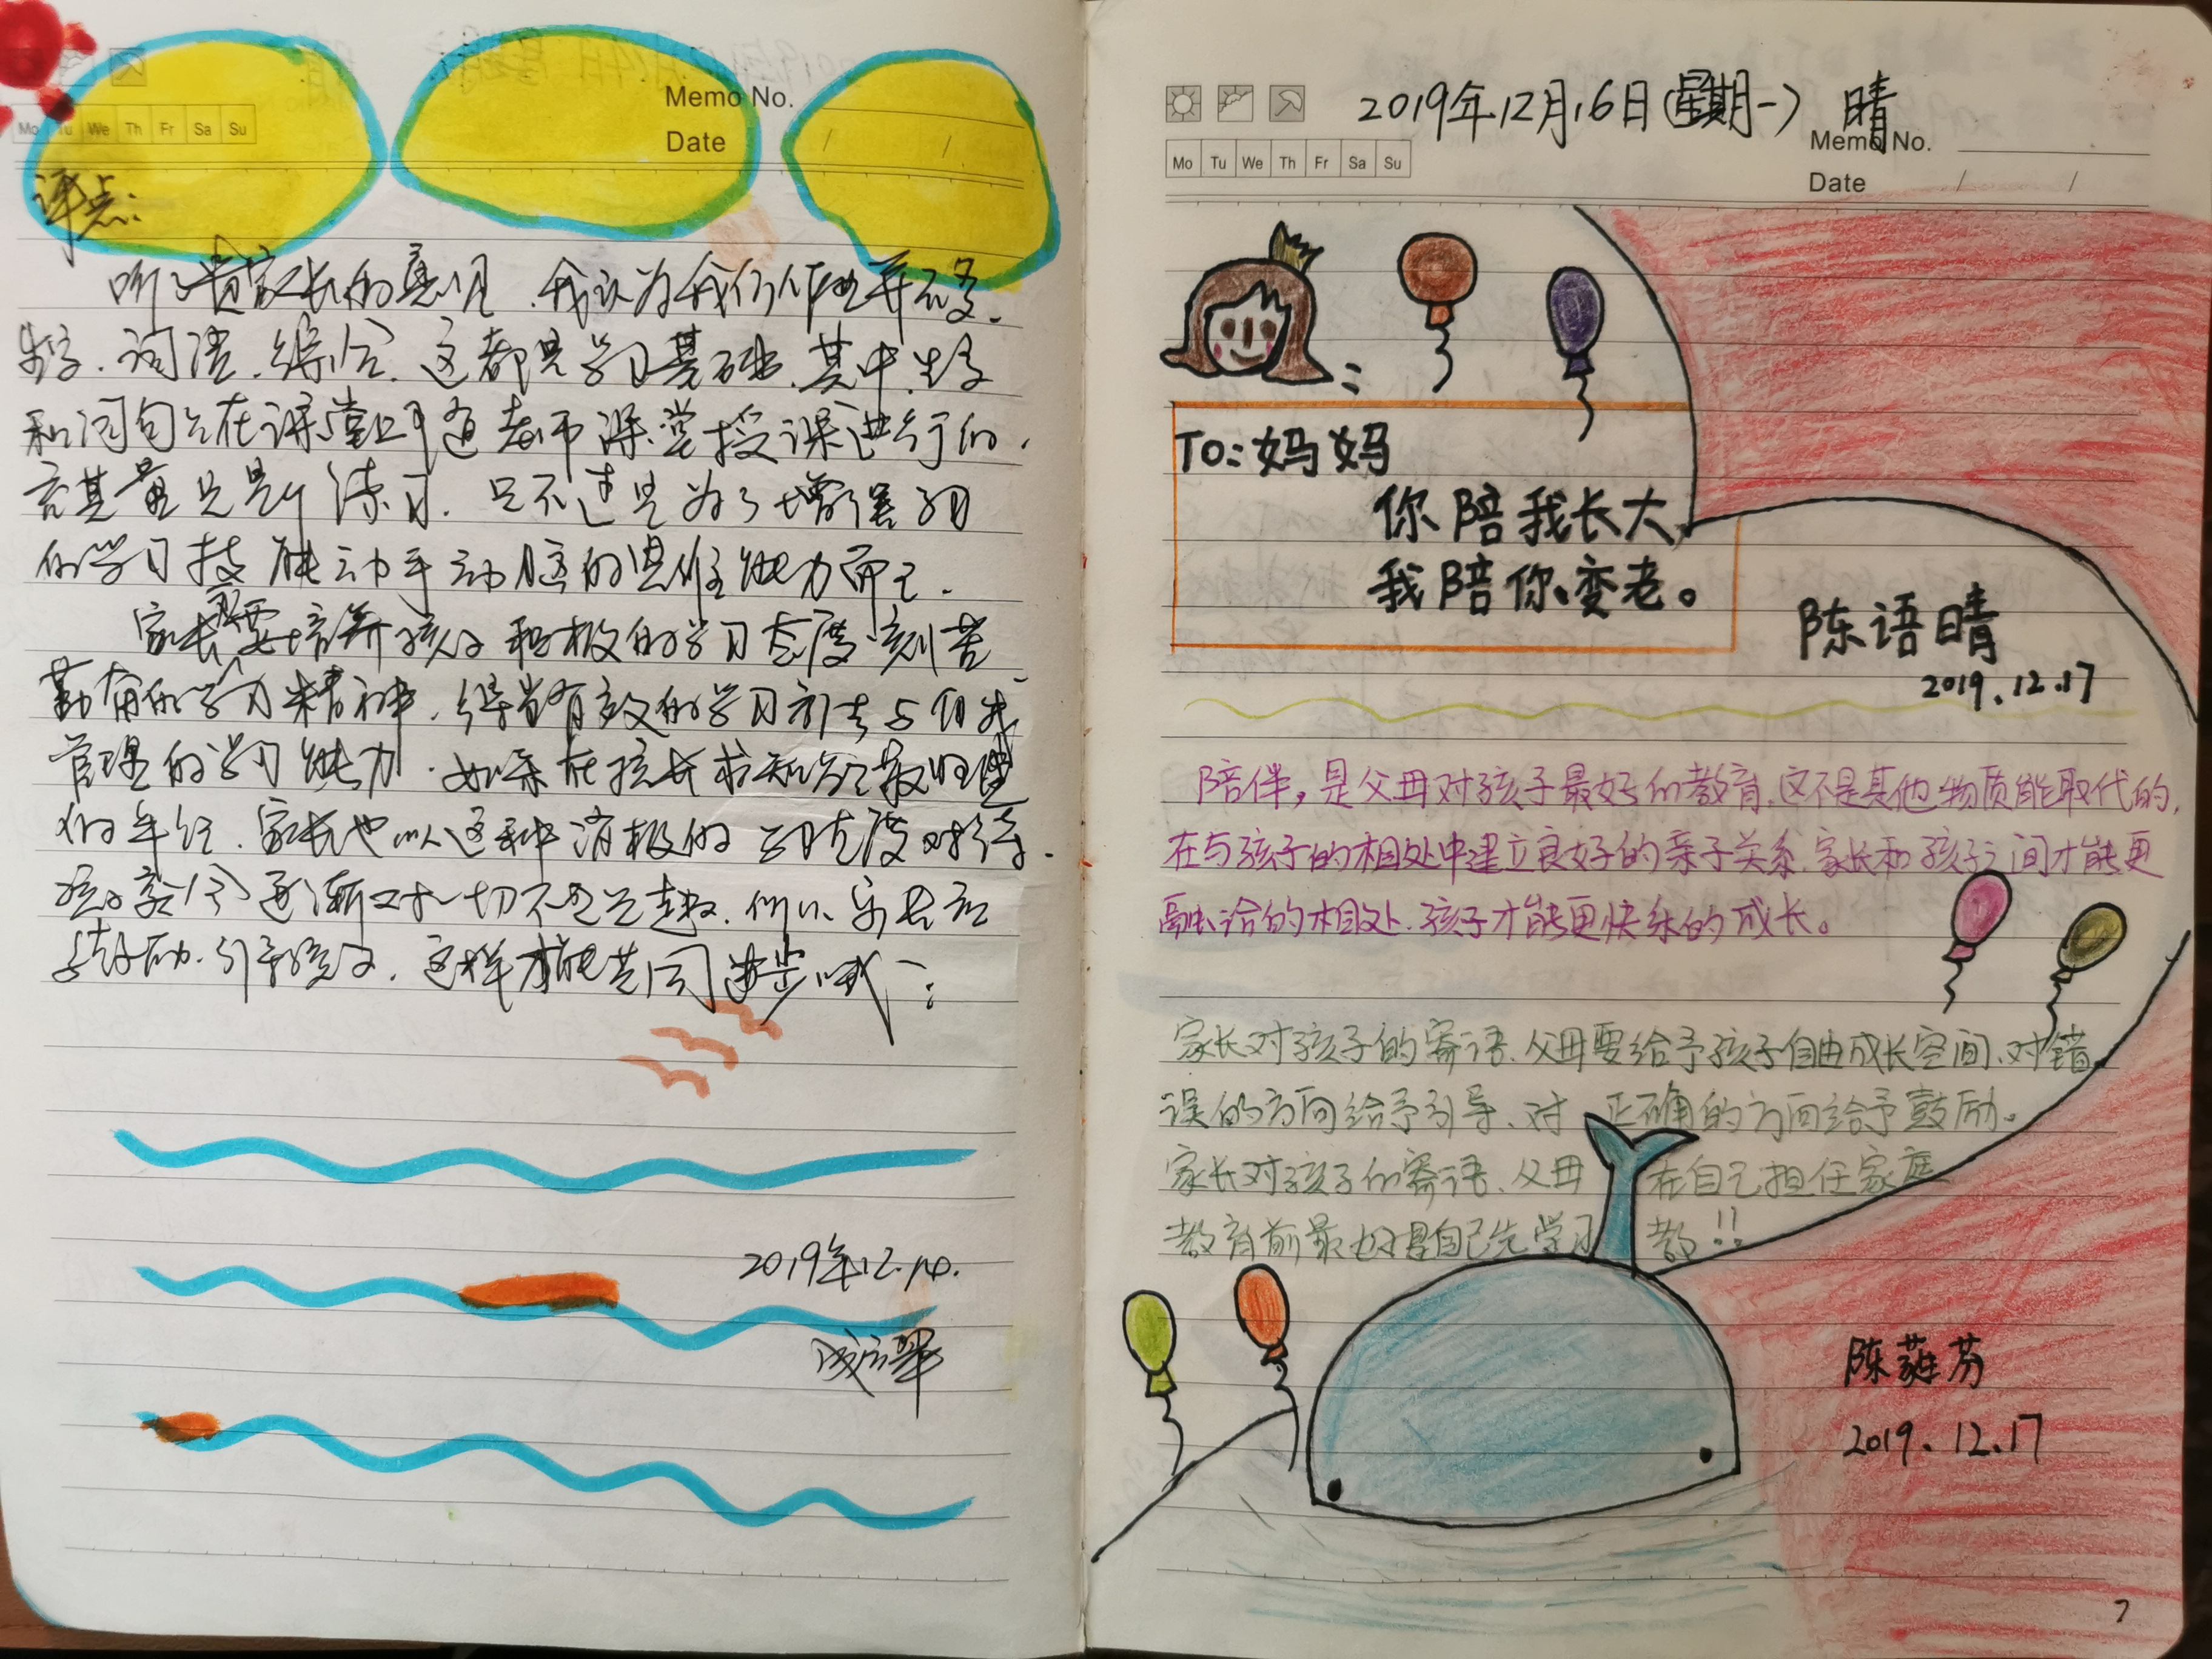 Memo No.
Mo Tu We Th Fr Sa Su
Date / /
评点:
听了贵家长的意见,我认为我们作业并不多.
生字.词语.综合.这都是学习基础.其中.生字
和词句是在课堂上通过老师课堂授课进行的.
只是练习.只不过是为了增强
的学习技能动手动脑的思维能力而已.
家长要培养孩子积极的学习态度.刻苦
勤奋的学习精神.有效的学习方法与自我
管理的学习能力.如果在孩子求知
的年纪.家长也以这种消极的态度对待.
孩子就会逐渐对一切不感兴趣.所以.家长应
鼓励.引导孩子.这样才能共同进步
2019年12.14.
2019年12月16日(星期一) 晴
Memo No.
Mo Tu We Th Fr Sa Su
Date / /
:
TO:妈妈
你陪我长大
我陪你变老。
陈语晴
2019.12.17
陪伴,是父母对孩子最好的教育.这不是其他物质能取代的,
在与孩子的相处中建立良好的亲子关系.家长和孩子之间才能更
融洽的相处.孩子才能更快乐的成长。
家长对孩子的寄语、父母要给予孩子自由成长空间、对错
误的方向给予引导、对正确的方面给予鼓励。
家长对孩子的寄语、父母在自己担任家庭
教育前最好是自己先学习 教!!
陈 芬
2019.12.17
7